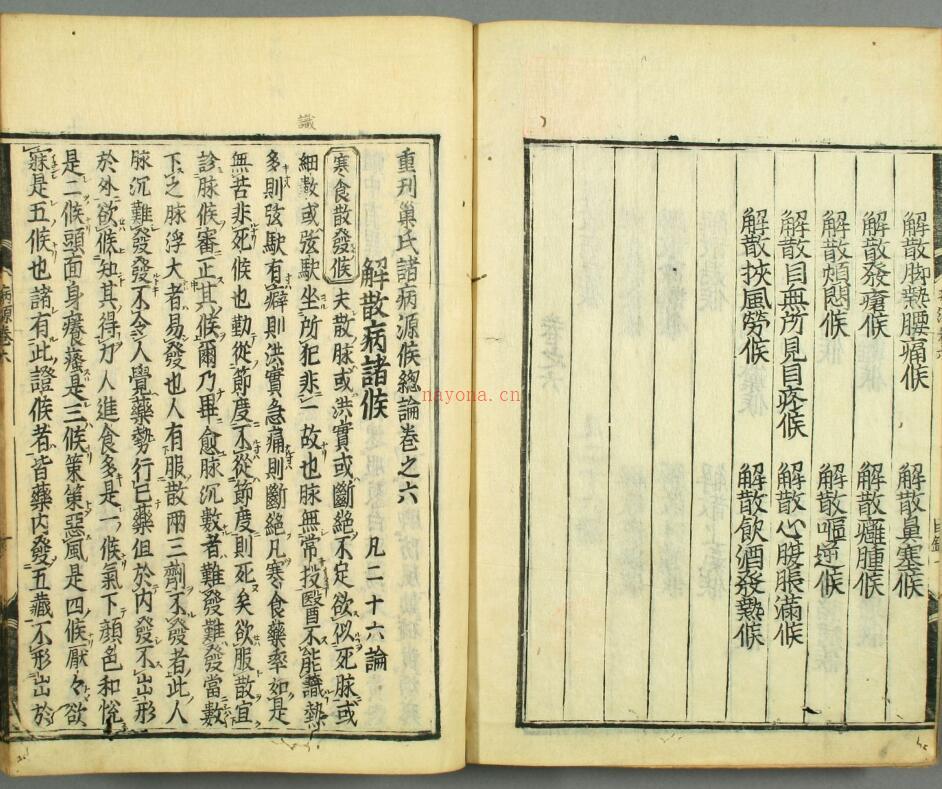 解散脚熱腰痛候 解散鼻塞候
解散發瘡候 解散癰腫候
解散煩悶候 解散嘔逆候
解散目無所見目疼候 解散心腹脹滿候
解散挾風勞候 解散飲酒發熱候
識
重刊巢氏諸病源候總論卷之六
解散病諸候 凡二十六論
寒食散發候 夫散脉或洪實或斷絶不定欲似死脉或
細數或弦駃坐所犯非一故也脉無常投醫不能識熱
多則弦駃有癖則洪實急痛則斷絶凡寒食藥率如是
無苦非死候也勤從節度不從節度則死矣欲服散宜
診脉候審正其候爾乃畢愈脉沉數者難發難發當數
下之脉浮大者易發也人有服散兩三劑不發者此人
脉沉難發發不令人覺藥勢行已藥但於内發不出形
於外欲候知其得力人進食多是一候氣下顔色和悅
是二候頭面身癢瘙是三候策策惡風是四候厭々欲
寐是五候也諸有此證候者皆藥内發五藏不形出於
病源卷六
nayona.cn